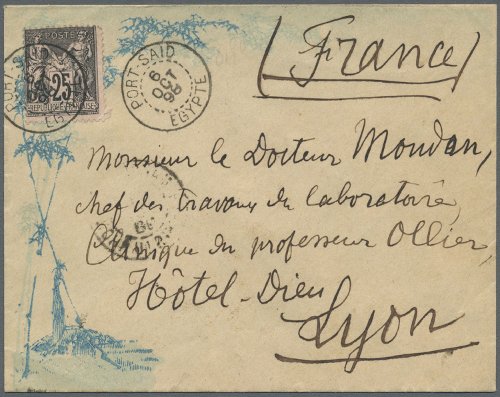 POSTE
25
RÉPUBLIQUE FRANÇAISE
PORT-SAID
9
OCT
96
EGYPTE
(France)
Monsieur le Docteur Moudan,
chef des travaux du laboratoire,
Clinique du professeur Ollier,
Hôtel-Dieu
Lyon